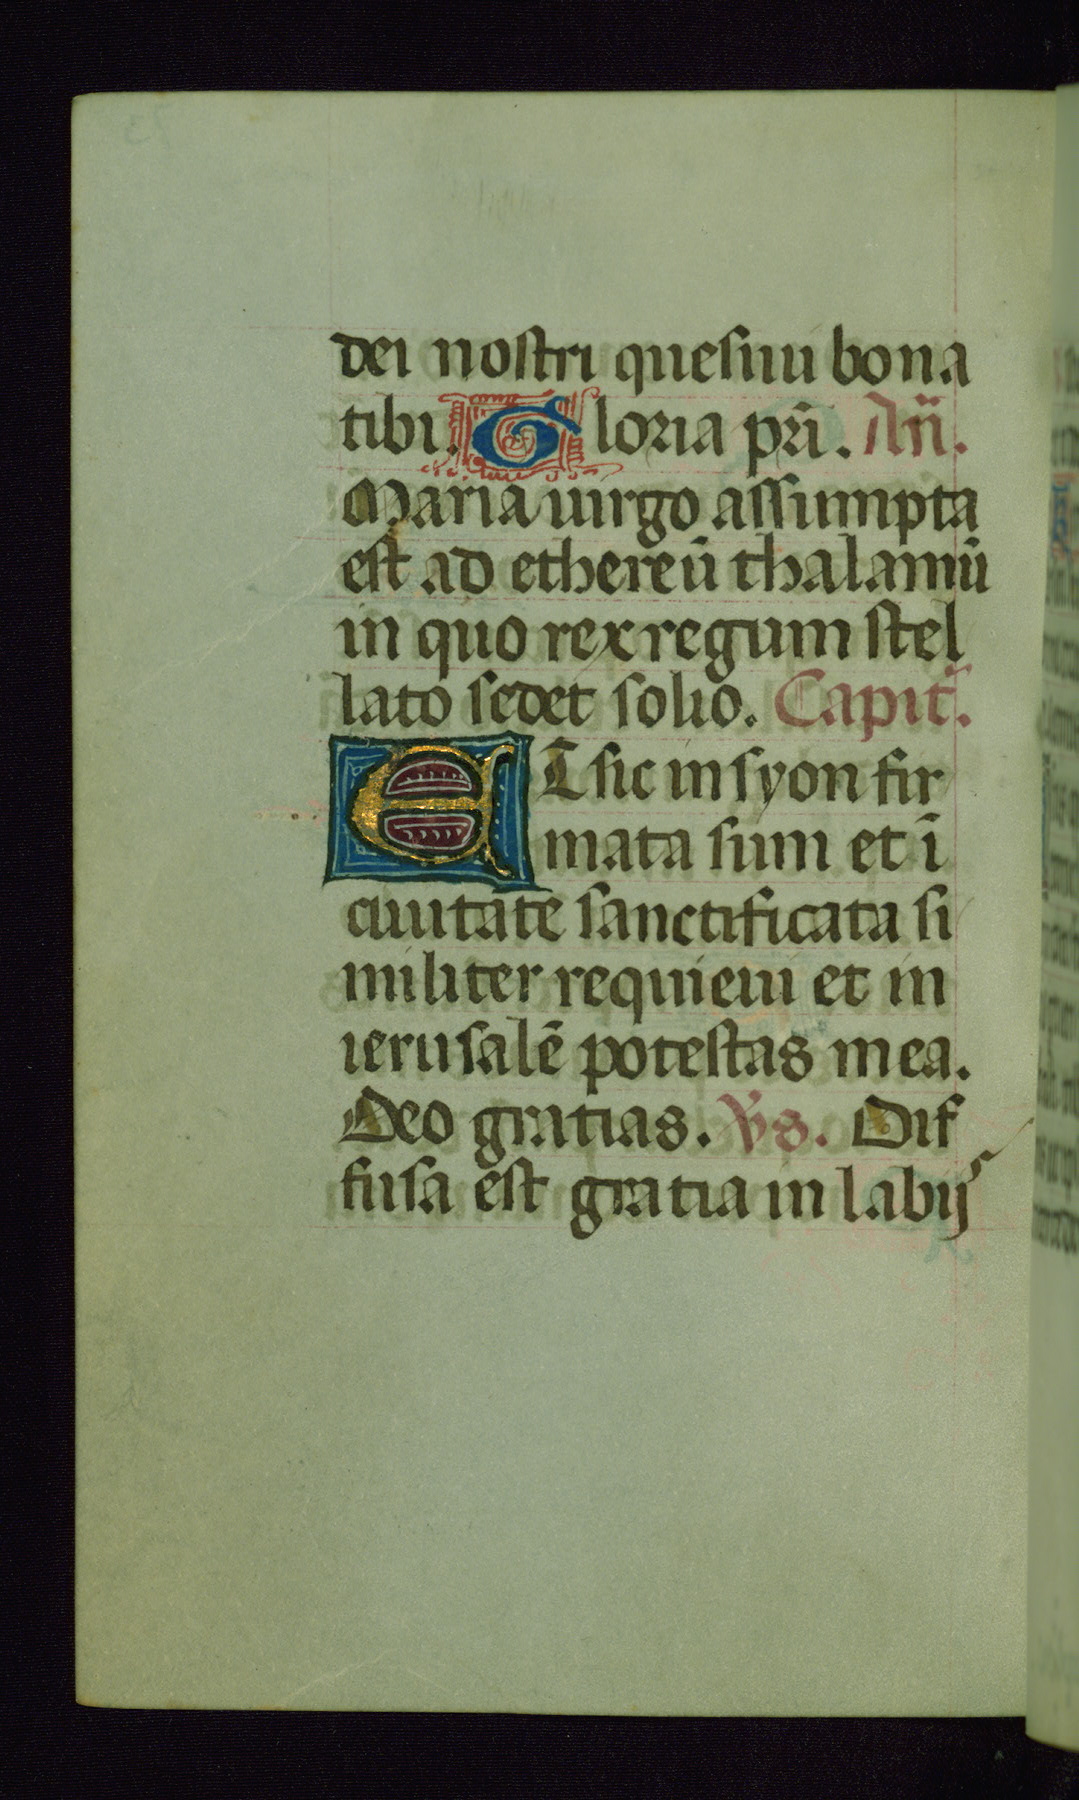 dei nostri quesiui bona
tibi. Gloria pr̃i. Añ.
Maria uirgo assumpta
est ad ethereū thalamū
in quo rex regum stel
lato sedet solio. Capit̃.
ET sic in syon fir
mata sum et ī
ciuitate sanctificata si
militer requieui et in
ierusalē potestas mea.
Deo gratias. Vs. Dif
fusa est gratia in labijs